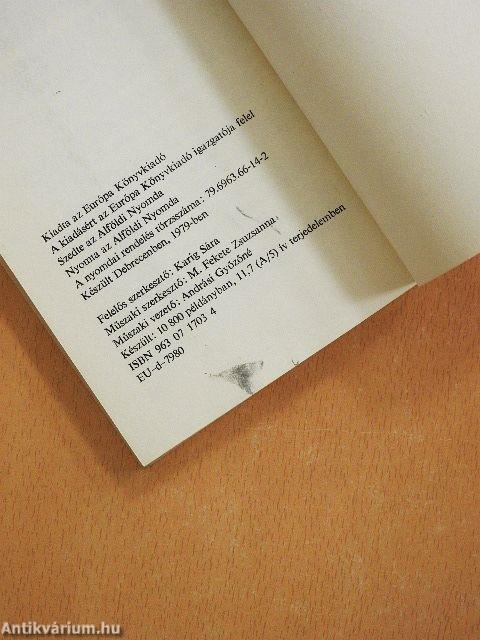 Kiadta az Európa Könyvkiadó
A kiadásért az Európa Könyvkiadó igazgatója felel
Szedte az Alföldi Nyomda
Nyomta az Alföldi Nyomda
A nyomdai rendelés törzsszáma: 79.6963.66-14-2
Készült Debrecenben, 1979-ben
Felelős szerkesztő: Karig Sára
Műszaki szerkesztő: M. Fekete Zsuzsanna
Műszaki vezető: Andrási Győzőné
Készült: 10 800 példányban, 11,7 (A/5) ív terjedelemben
ISBN 963 07 1703 4
EU-d-7980
Antikvárium.hu